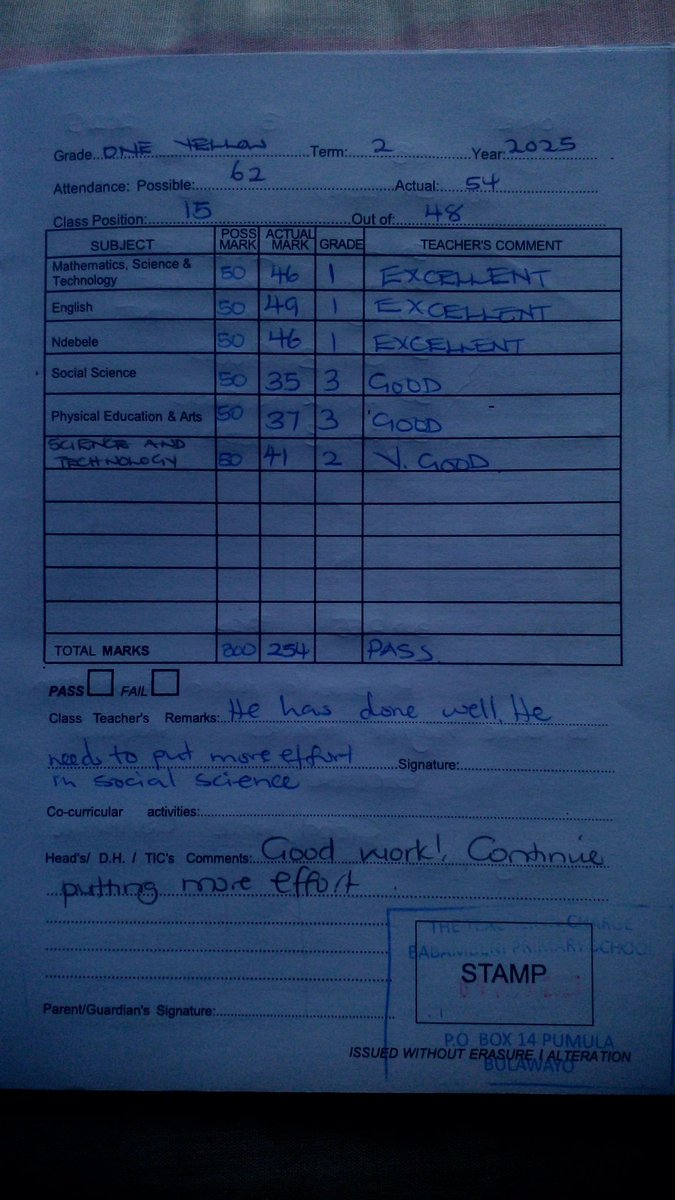 Grade..ONE YELLOW Term: 2 Year 2025
Attendance: Possible: 62 Actual: 54
Class Position: 15 Out of: 48
SUBJECT POSS MARK ACTUAL MARK GRADE TEACHER'S COMMENT
Mathematics, Science & Technology 50 46 1 EXCELLENT
English 50 49 1 EXCELLENT
Ndebele 50 46 1 EXCELLENT
Social Science 50 35 3 GOOD
Physical Education & Arts 50 37 3 GOOD
SCIENCE AND TECHNOLOGY 50 41 2 V. GOOD
TOTAL MARKS 300 254 PASS
PASS FAIL
Class Teacher's Remarks: He has done well. He
needs to put more effort Signature:
in social science
Co-curricular activities:
Head's/ D.H. / TIC's Comments: Good work!. Continue
putting more effort
PRIMARY SCHOOL
STAMP
Parent/Guardian's Signature:
P.O BOX 14 PUMULA
ISSUED WITHOUT ERASURE / ALTERATION
BULAWAYO